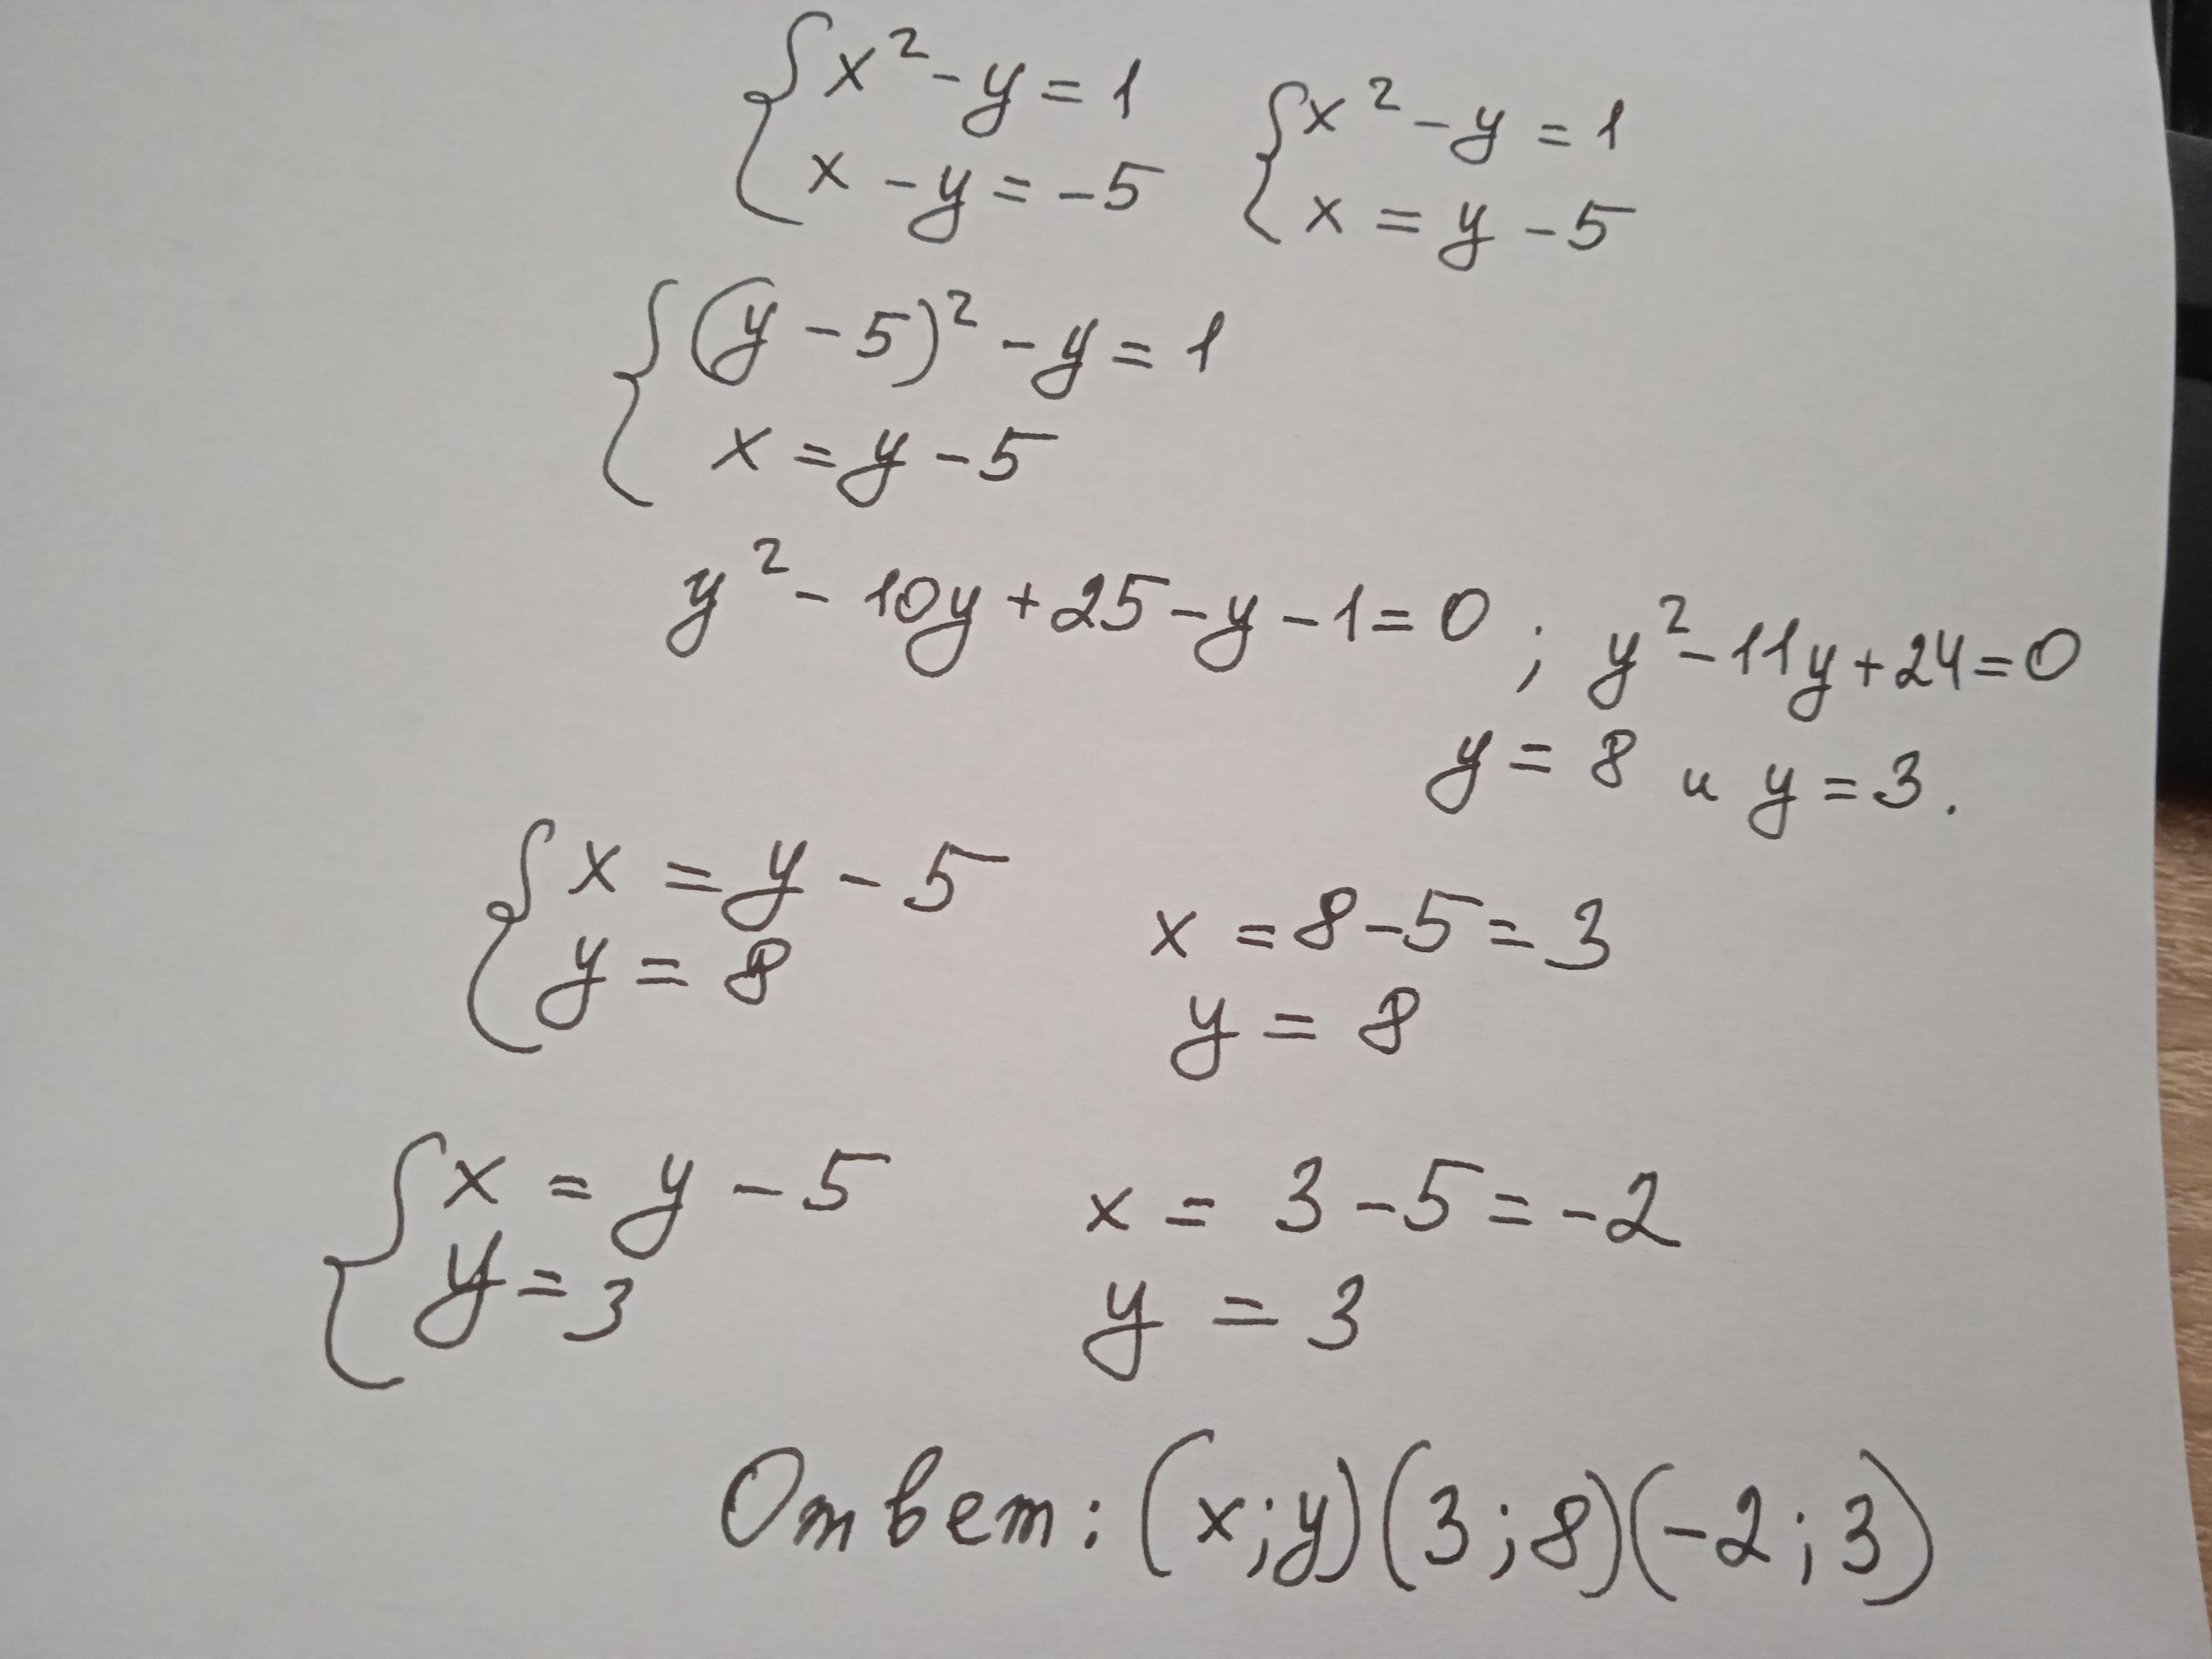 {x² - y = 1   {x² - y = 1
{x - y = -5   {x = y - 5
{(y - 5)² - y = 1
{x = y - 5
y² - 10y + 25 - y - 1 = 0 ; y² - 11y + 24 = 0
y = 8 и y = 3.
{x = y - 5   x = 8 - 5 = 3
{y = 8   y = 8
{x = y - 5   x = 3 - 5 = -2
{y = 3   y = 3
Ответ: (x; y) (3; 8) (-2; 3)